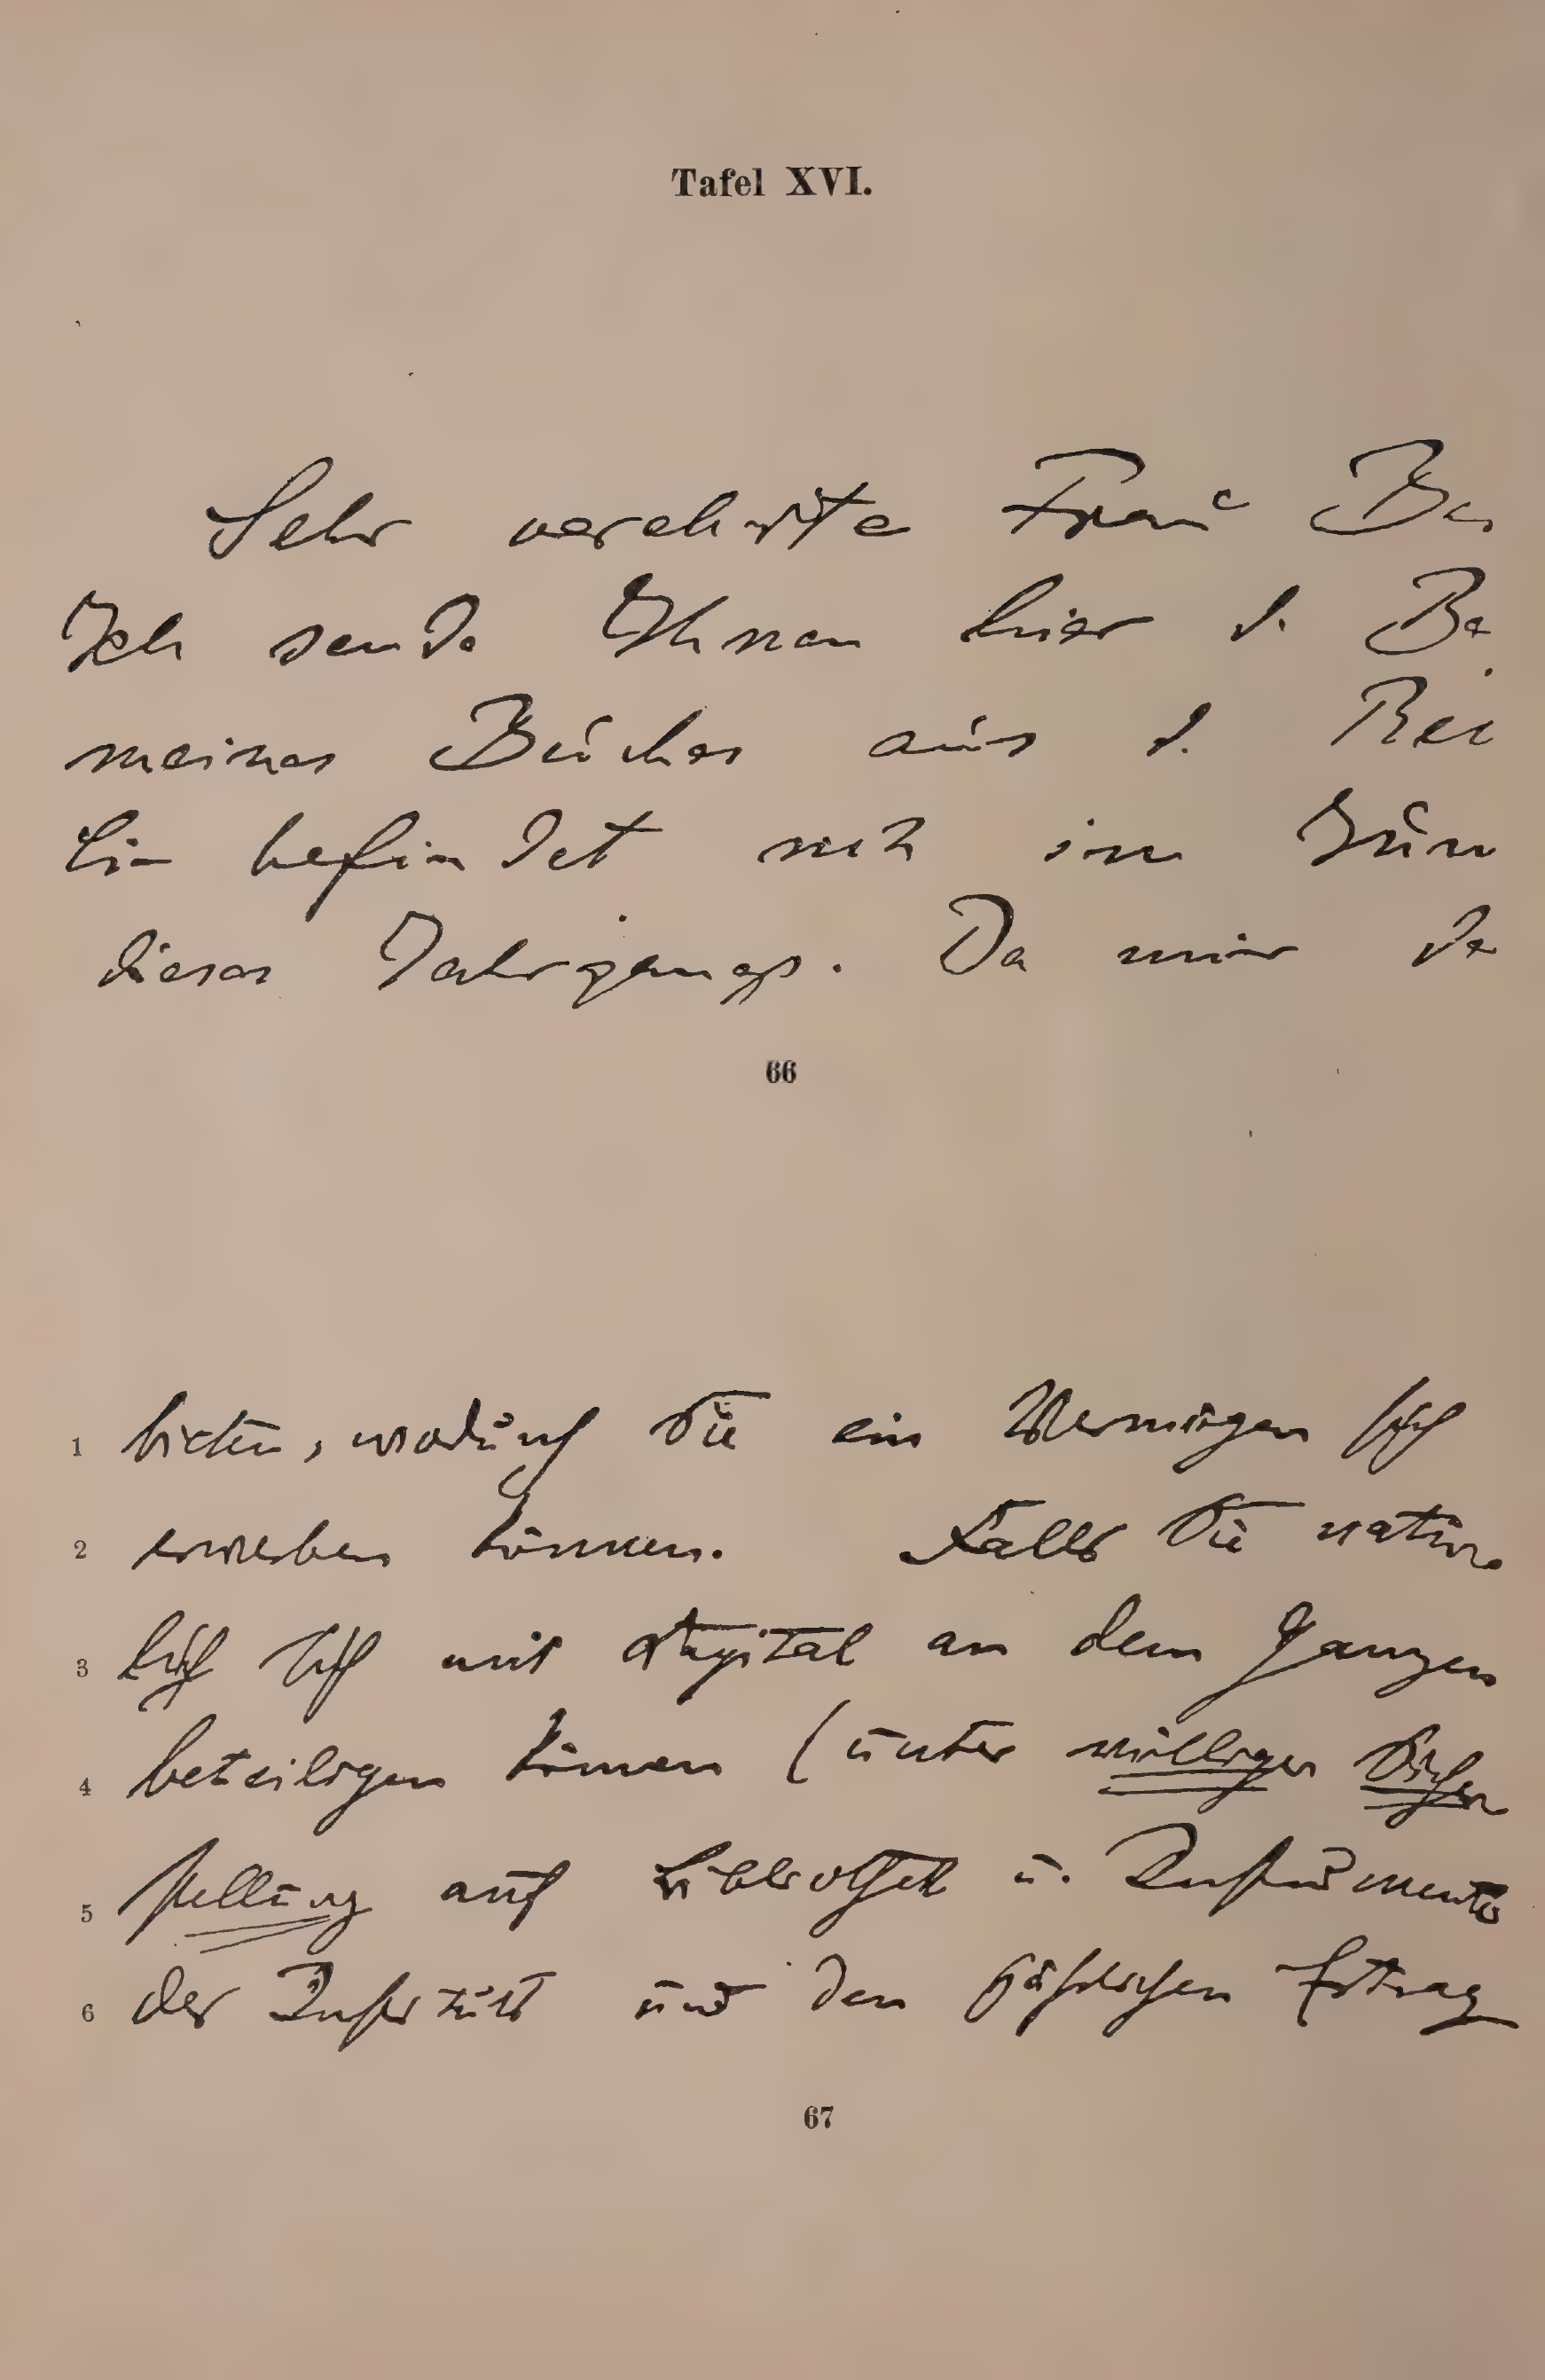 Tafel XVI.
Sehr verehrte Frau
Ich sende Ihnen hier d. Be
meines Buches aus d. Rei
lin befindet sich im
dieses Jahrgangs. Da mir de
66
1 bieten, wodurch Sie ein Vermögen sich
2 erwerben können. Falls Sie natür
3 lich sich mit Kapital an dem Ganzen
4 beteiligen können (unter völliger Sicher
5 stellung auf Bibliothek u. Instrumente
6 der Institut und den jährlichen Ertrag
67